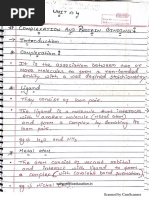 UNIT # 4
# COMPLEXATION AND PROTEIN BINDING :
# Introduction
# Complexation :
• It is the association between two or
more molecules to form a non-bonded
entity with a well defined stoichiometry.
# Ligand
• They consist of lone pair
• The ligand is a molecule that interact
with another molecule (metal atom) and
form a complex by donating its
lone pair.
• e.g. H₂O and NH₃
# Metal atom
• The atom consist of vacant orbital
and interact with ligand to form a
complex (with covalent bond formation).
• e.g.
Scanned by CamScanner